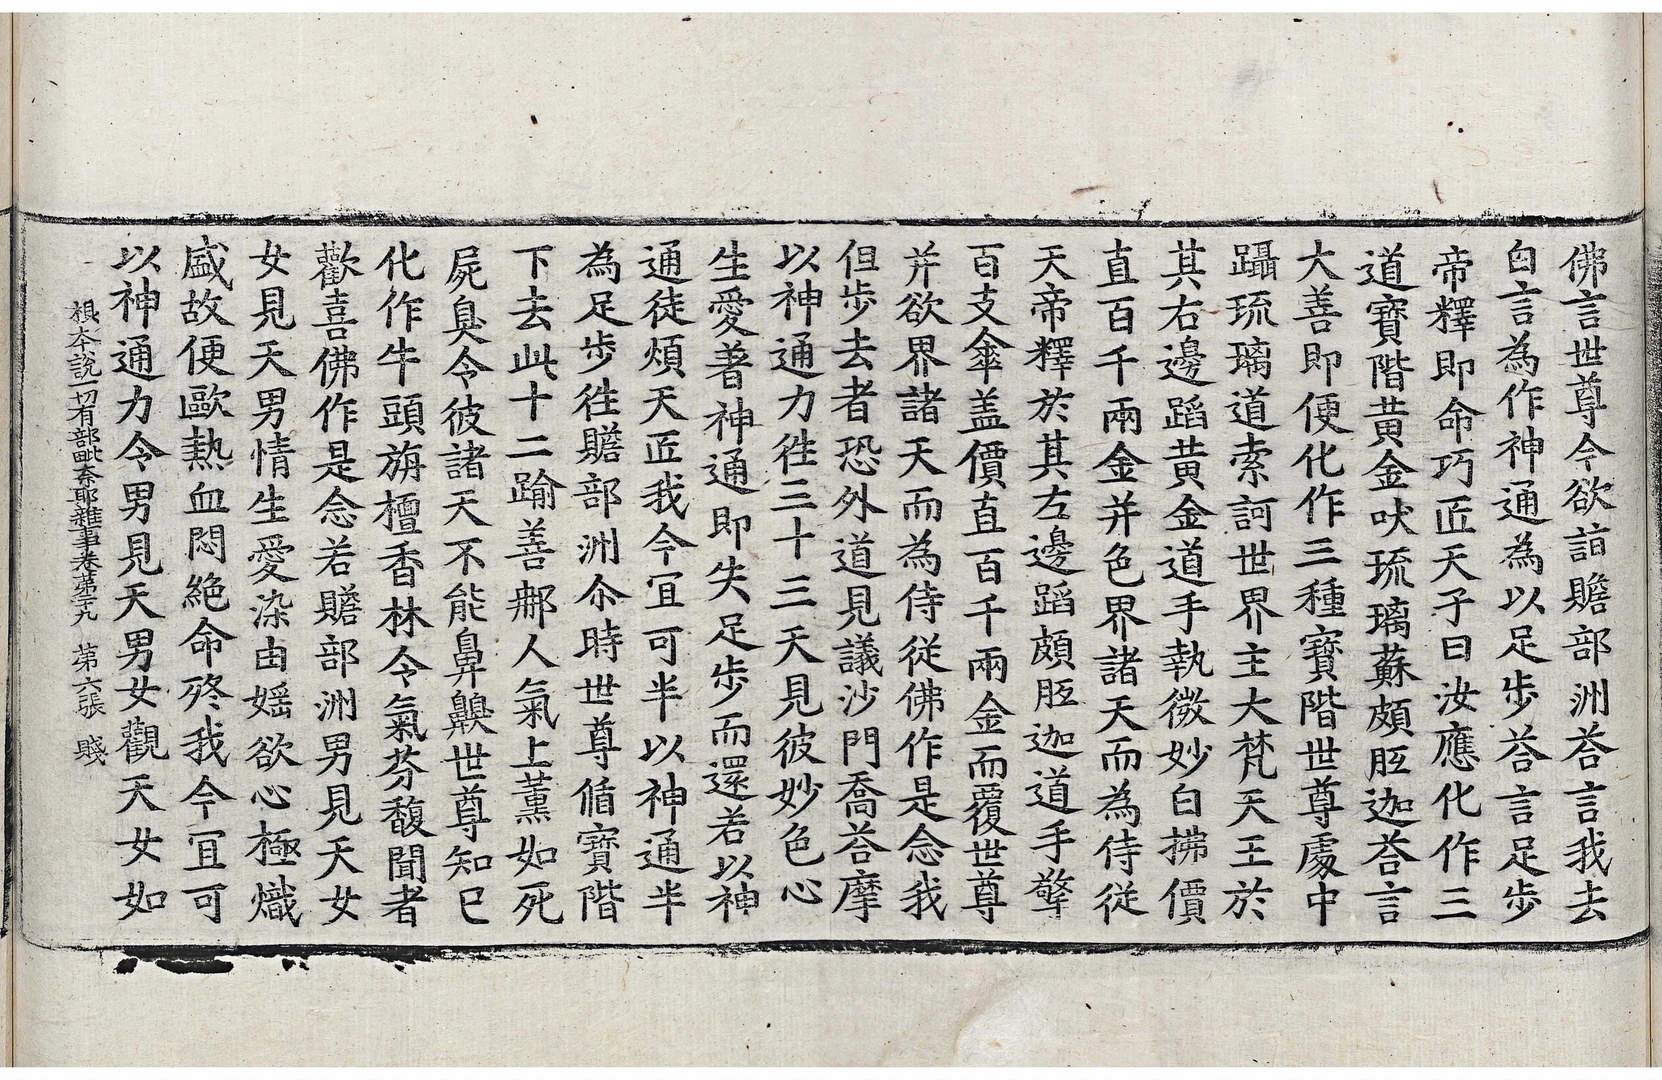 佛言世尊今欲詣贍部洲荅言我去
白言為作神通為以足步荅言足步
帝釋即命巧匠天子曰汝應化作三
道寶階黃金吠琉璃蘇頗胝迦荅言
大善即便化作三種寶階世尊處中
躡琉璃道索訶世界主大梵天王於
其右邊蹈黃金道手執微妙白拂價
直百千兩金并色界諸天而為侍從
天帝釋於其左邊蹈頗胝迦道手擎
百支傘盖價直百千兩金而覆世尊
并欲界諸天而為侍從佛作是念我
但步去者恐外道見議沙門喬荅摩
以神通力徃三十三天見彼妙色心
生愛著神通即失足步而還若以神
通徒煩天匠我今宜可半以神通半
為足步徃贍部洲尒時世尊循寶階
下去此十二踰善那人氣上薰如死
屍臭令彼諸天不能鼻齅世尊知已
化作牛頭旃檀香林令氣芬馥聞者
歡喜佛作是念若贍部洲男見天女
女見天男情生愛染由婬欲心極熾
盛故便歐熱血悶絶命終我今宜可
以神通力令男見天男女觀天女如
根本說一切有部毗奈耶雜事卷第二十九 第六張 賤